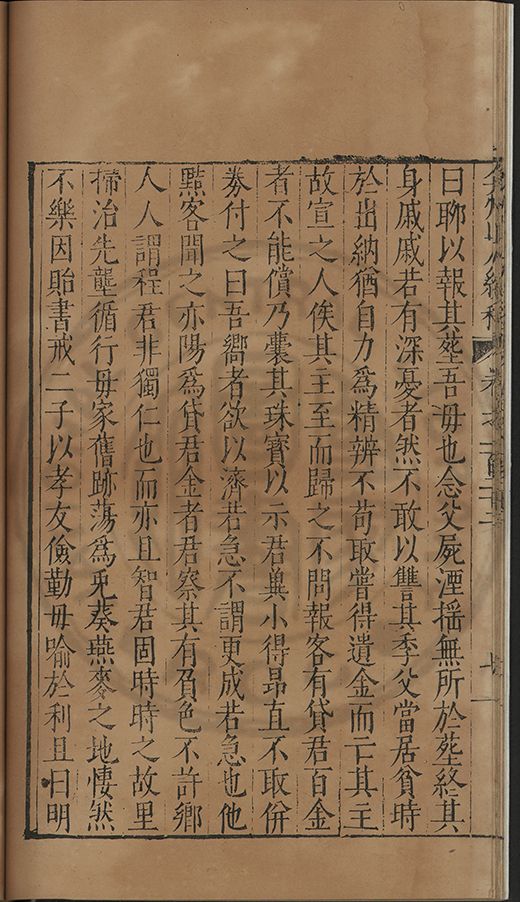 曰聊以報其塟吾毋也念父屍湮揺無所於塟終其
身戚戚若有深憂者然不敢以讐其季父當居貧時
於出納猶自力為精辨不苟取嘗得遺金而亡其主
故宣之人俟其主至而歸之不問報客有貸君百金
者不能償乃囊其珠寳以示君兾小得昻直不取併
券付之曰吾嚮者欲以濟若急不謂更成若急也他
黠客聞之亦陽為貸君金者君察其有負色不許鄉
人人謂程君非獨仁也而亦且智君固時時之故里
掃治先壟循行毋家舊跡蕩為兎葵燕麥之地悽然
不樂因貽書戒二子以孝友儉勤毋喻於利且曰明